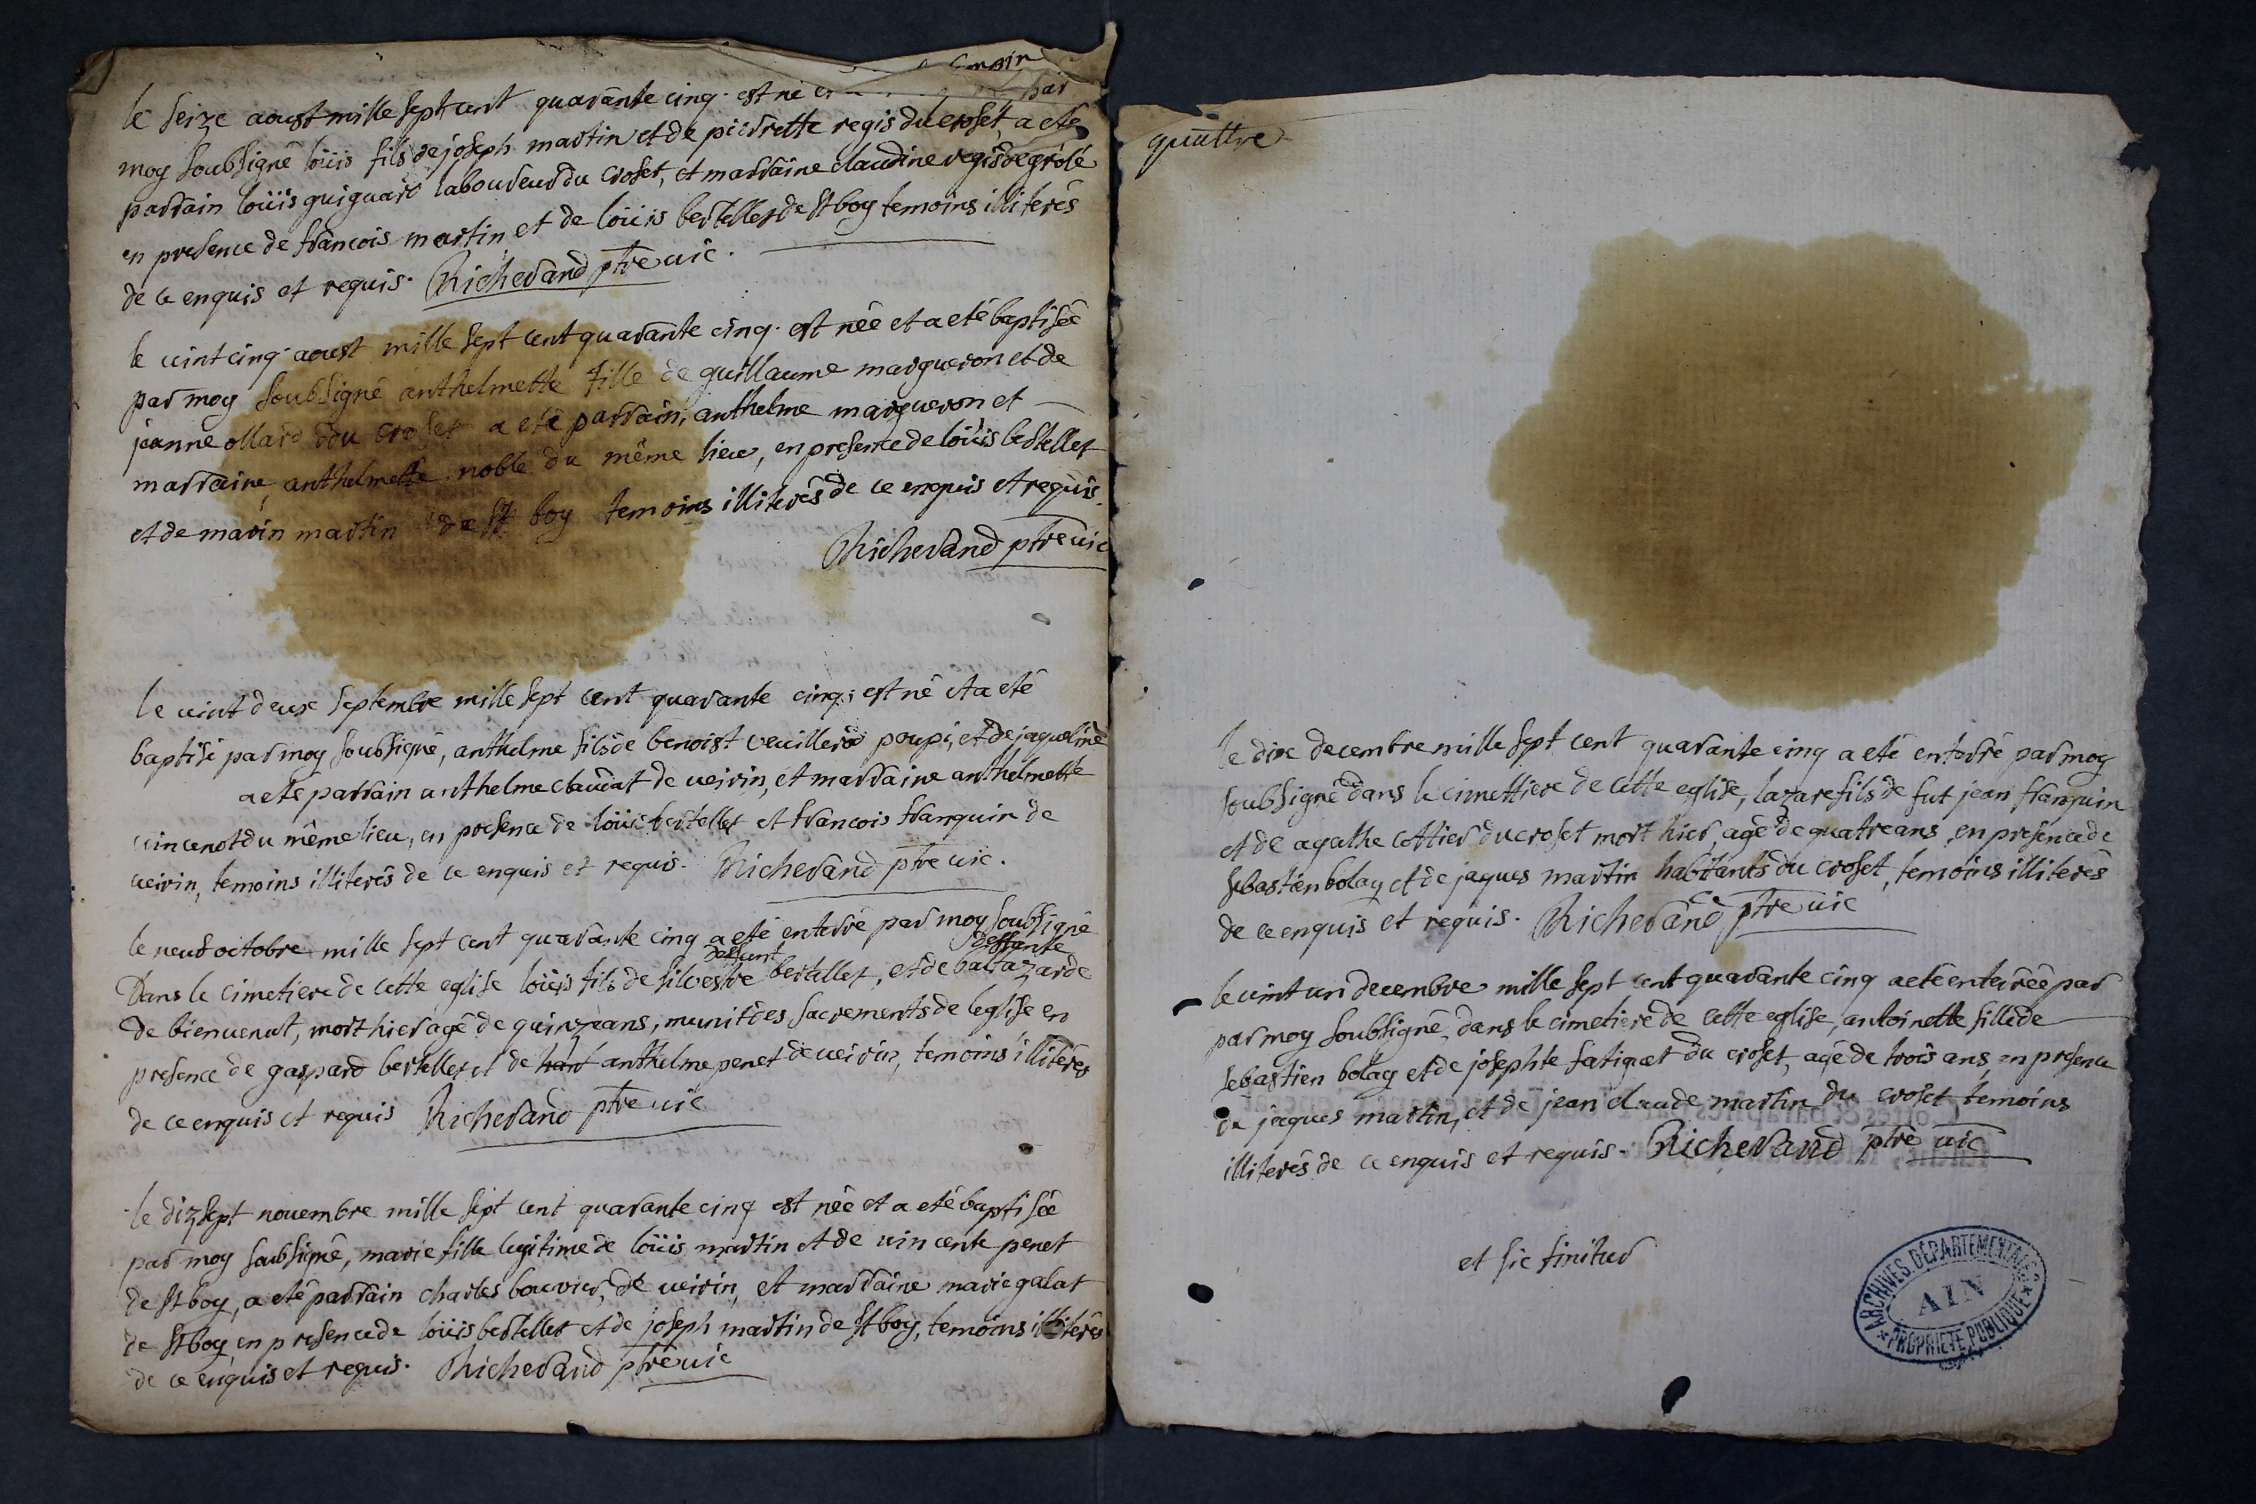 le seize aoust mille sept cent quarante cinq. est né et
par
moy soubsigné loüis fils de joseph martin et de pierrette regis du croset, a eté
parrain loüis guiguard laboureur du croset, et marraine claudine regis de grolé
en presence de francois martin et de loüis bertellet de St boy temoins illiterés
de ce enquis et requis. Richerand ptre vic.
le vint cinq aoust mille sept cent quarante cinq. est née et a eté baptisée
par moy soubsigné anthelmette fille de guillaume margueron et de
jeanne ollard du croset a eté parrain, anthelme margueron et
marraine, anthelmette noble du même lieu, en presence de loüis bertellet
et de marin martin de St boy temoins illiterés de ce enquis et requis.
Richerand ptre vic
le vint deux septembre mille sept cent quarante cinq; est né et a eté
baptisé par moy soubsigné, anthelme fils de benoist veuillerd poupi, et de jaqueline
a eté parrain anthelme clavat de veirin, et marraine anthelmette
vincenot du même lieu, en presence de loüis bertellet et francois franquin de
veirin, temoins illiterés de ce enquis et requis. Richerand ptre vic.
le neuf octobre mille sept cent quarante cinq a eté enterré par moy soubsigné
deffunt deffunte
Dans le cimetiere de cette eglise loüis fils de silvestre bertellet, et de baltazarde
de bienvenut, mort hier agé de quinze ans, munit des sacrements de leglise en
presence de gaspard bertellet et de anthelme penet de veirin, temoins illiterés
de ce enquis et requis Richerand ptre vic
le dizsept novembre mille sept cent quarante cinq est née et a eté baptisée
par moy soubsigné, marie fille legitime de loüis martin et de vincente penet
de St boy, a eté parrain charles bouvier, de veirin, et marraine marie galat
de St boy en presence de loüis bertellet et de joseph martin de St boy, temoins illiterés
de ce enquis et requis. Richerand ptre vic
quattre
le dix decembre mille sept cent quarante cinq a eté enterré par moy
soubsigné dans le cimettiere de cette eglise, lazare fils de fut jean franquin
et de agathe cottier du croset mort hier, agé de quatre ans en presence de
sebastien bolay et de jaques martin habitants du croset, temoins illiterés
de ce enquis et requis. Richerand ptre vic
le vint un decembre mille sept cent quarante cinq a eté enterrée par
par moy soubsigné, dans le cimetiere de cette eglise, antoinette fille de
sebastien bolay et de josephte fatiguet du croset, agé de trois ans, en presence
de jaques martin, et de jean claude martin du croset temoins
illiterés de ce enquis et requis. Richerand ptre vic
et sic finitur
ARCHIVES DÉPARTEMENTALES
AIN
PROPRIÉTÉ PUBLIQUE